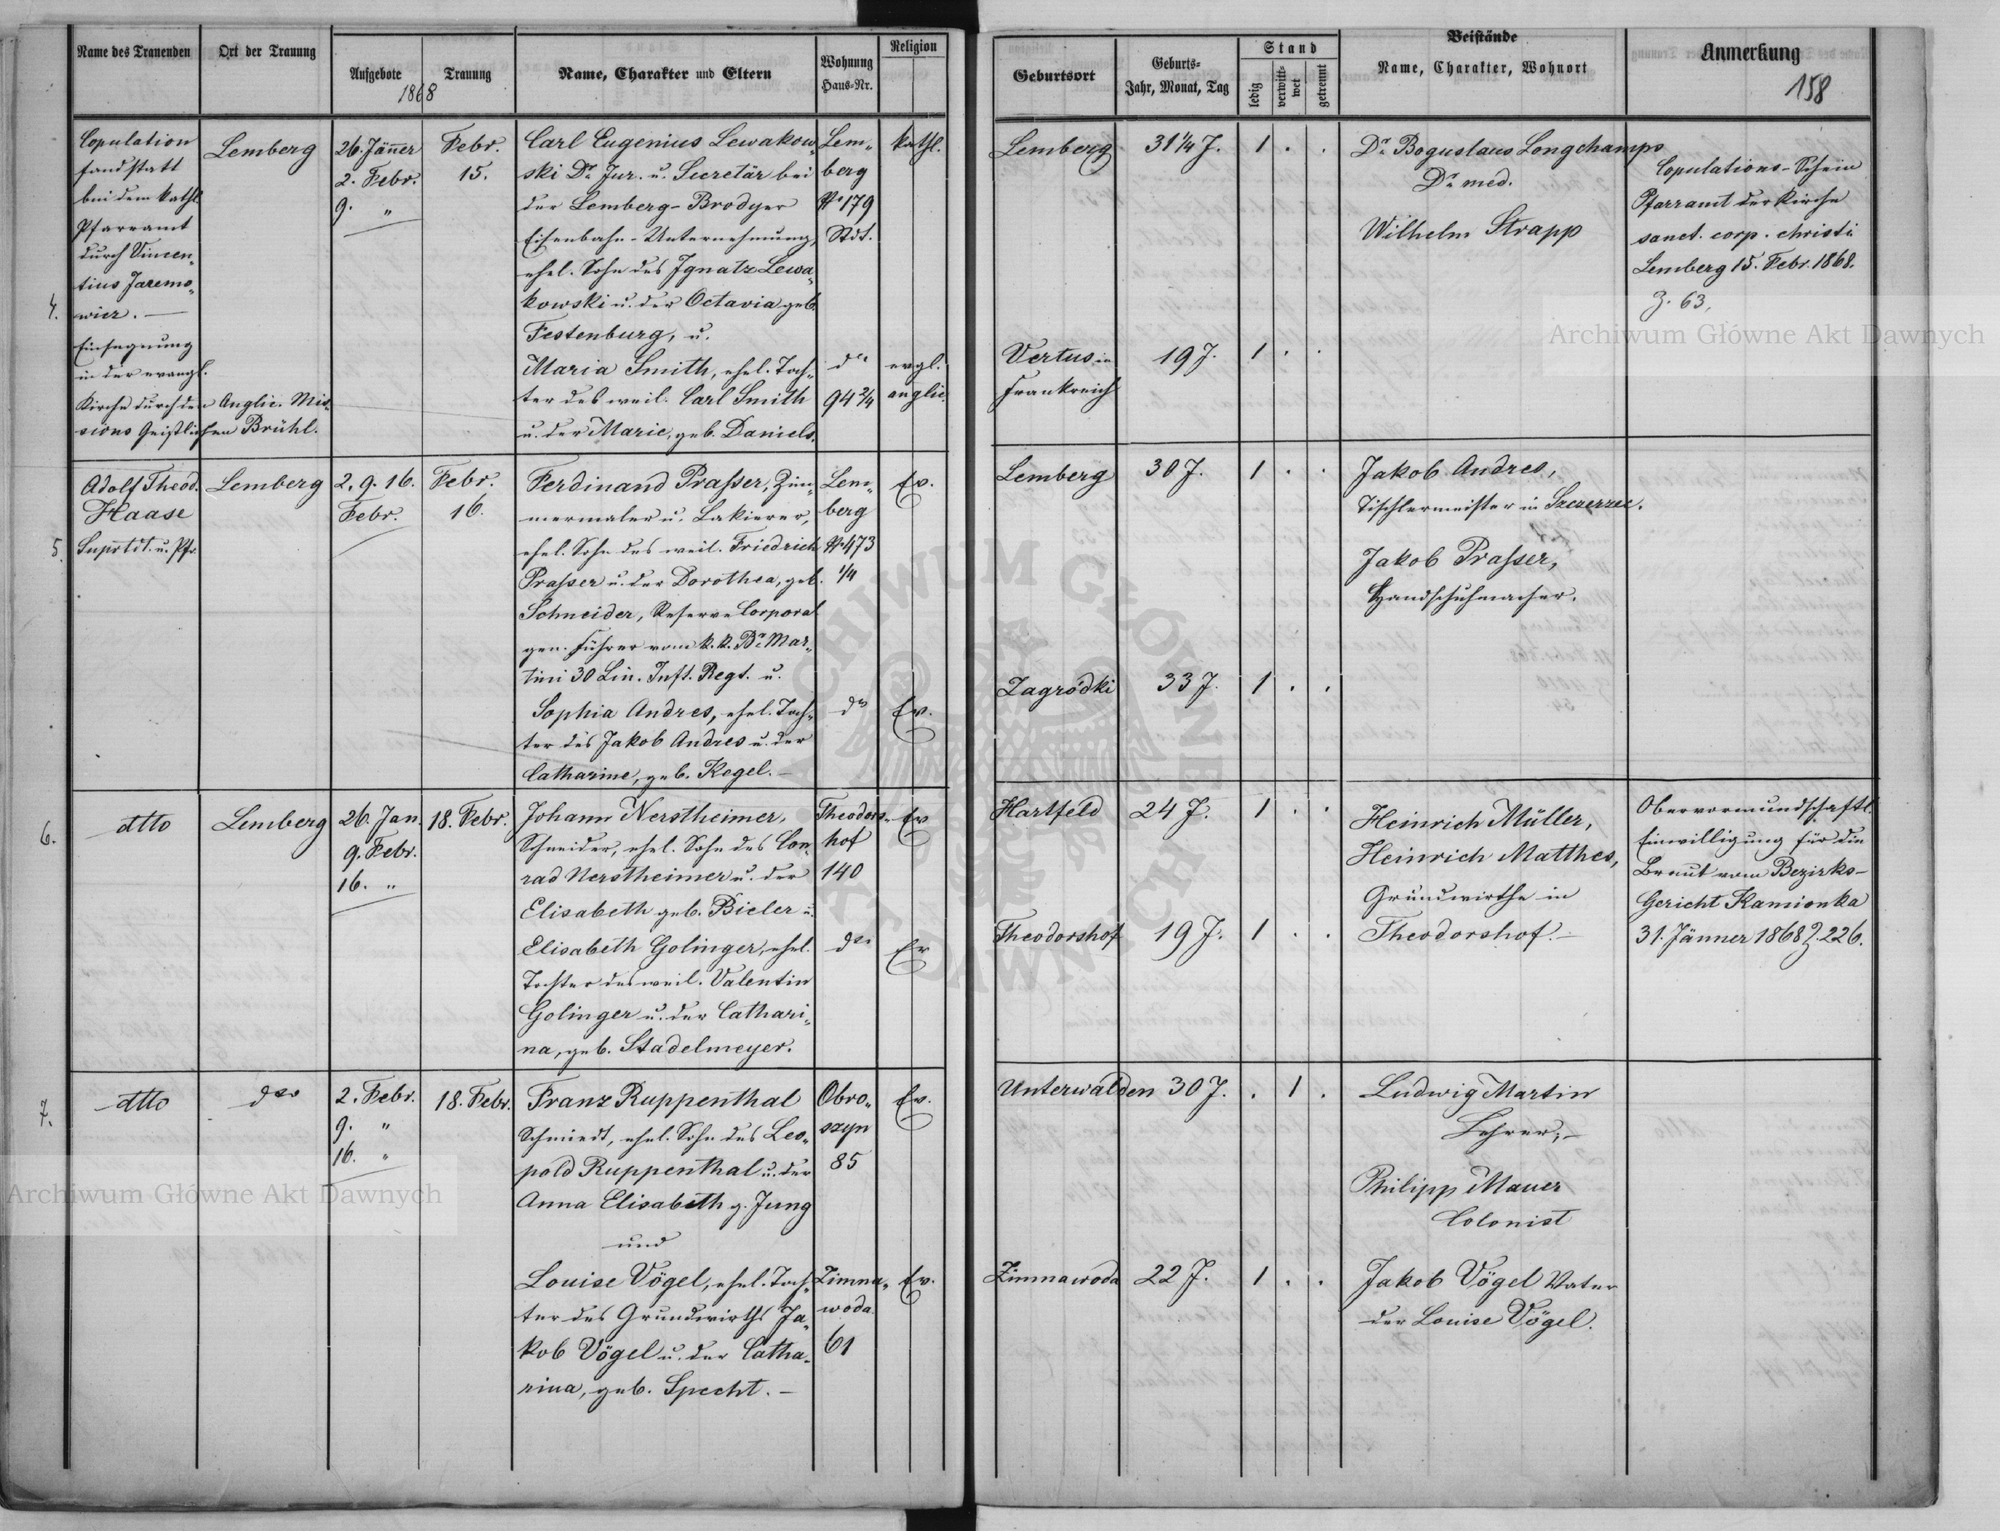 Name des Trauenden
Ort der Trauung
Aufgebote
Trauung
1868
Name, Charakter und Eltern
Wohnung
Haus-Nr.
Religion
Geburtsort
Geburts-
Jahr, Monat, Tag
Stand
ledig
verwitt-
wet
getrennt
Beistände
Name, Charakter, Wohnort
Anmerkung
158
4.
Copulation
fand statt
bei dem kathl
Pfarramt
durch Vincen-
tius Jaremo-
wicz. —
Einsegnung
in der evangl.
Kirche durch den Anglic. Mis-
sions Geistlichen Brühl.
Lemberg
26. Jänner
2. Febr.
9. "
Febr.
15.
Carl Eugenius Lewakow-
ski Dr. Jur. u. Secretär bei
der Lemberg-Brodyer
Eisenbahn-Unternehmung,
ehel. Sohn des Ignatz Lewa-
kowski u. der Octavia geb.
Festenburg, u.
Maria Smith, ehel. Toch-
ter des weil. Carl Smith
u. der Marie, geb. Daniels.
Lem-
berg
No 179
Stdt.
dto
94 2/4
kathl.
evgl.
anglic.
Lemberg
31 1/4 J.
1 . .
Vertus in
Frankreich
19 J.
1 . .
Dr. Boguslaus Longchamps
Dr. med.
Wilhelm Strapp
Copulations-Schein
Pfarramt der Kirche
sanct. corp. christi
Lemberg 15. Febr. 1868.
Z. 63.
Archiwum Główne Akt Dawnych
5.
Adolf Theod.
Haase
Suptdt. u. Pfr.
Lemberg
2. 9. 16.
Febr.
Febr.
16.
Ferdinand Prasser, Zim-
mermaler u. Lakierer,
ehel. Sohn des weil. Friedrich
Prasser u. der Dorothea, geb.
Schneider, Reserve Corporal
gen. Führer vom k. k. Br. Mar-
tini 30 Lin. Inft. Regt. u.
Sophia Andres, ehel. Toch-
ter des Jakob Andres u. der
Catharine, geb. Kegel. —
Lem-
berg
No 473
1/4
dto
Ev.
Ev.
Lemberg
30 J.
1 . .
Zagródki
33 J.
1 . .
Jakob Andres,
Tischlermeister in Szczerzec.
Jakob Prasser,
Handschuhmacher.
6.
dtto
Lemberg
26. Jan
9. Febr.
16. "
18. Febr.
Johann Nerstheimer,
Schneider, ehel. Sohn des Con-
rad Nerstheimer u. der
Elisabeth geb. Bieler u.
Elisabeth Golinger, ehel.
Tochter des weil. Valentin
Golinger u. der Cathari-
na, geb. Stadelmeyer.
Theodors-
hof
140
dto
Ev
Ev
Hartfeld
24 J.
1 . .
Theodorshof
19 J.
1 . .
Heinrich Müller,
Heinrich Matthes,
Grundwirthe in
Theodorshof. —
Obervormundschaftl.
Einwilligung für die
Braut vom Bezirks-
Gericht Kamionka
31. Jänner 1868 Z. 226.
7.
dtto
dto
2. Febr.
9. "
16. "
18. Febr.
Franz Ruppenthal
Schmiedt, ehel. Sohn des Leo-
pold Ruppenthal u. der
Anna Elisabeth g. Jung
und
Louise Vögel, ehel. Toch-
ter des Grundwirths Ja-
kob Vögel u. der Catha-
rina, geb. Specht. —
Obro-
szyn
85
Zimna-
woda
61
Ev.
Ev.
Unterwalden
30 J.
. 1 .
Zimnawoda
22 J.
1 . .
Ludwig Martin
Lehrer, —
Philipp Mauer
Colonist
Jakob Vögel Vater
der Louise Vögel.
Archiwum Główne Akt Dawnych
ARCHIWUM GŁÓWNE AKT DAWNYCH